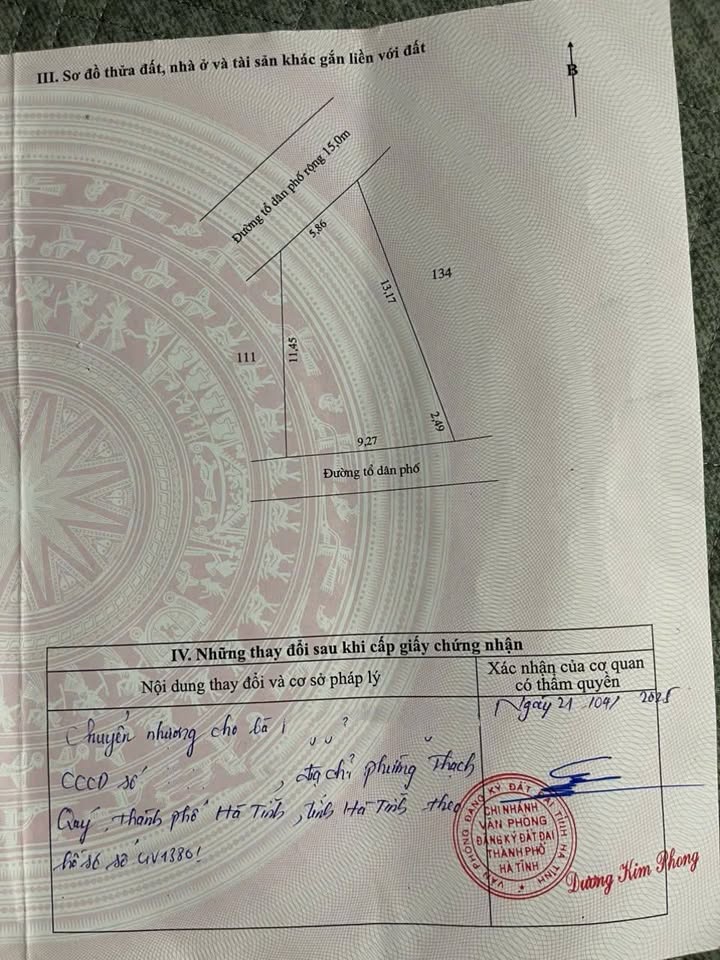 III. Sơ đồ thửa đất, nhà ở và tài sản khác gắn liền với đất
B
Đường tổ dân phố rộng 15,0m
5,86
134
13,17
111
11,45
2,49
9,27
Đường tổ dân phố
IV. Những thay đổi sau khi cấp giấy chứng nhận
Nội dung thay đổi và cơ sở pháp lý
Xác nhận của cơ quan
có thẩm quyền
Ngày 21/04/2025
Chuyển nhượng cho bà
CCCD số , địa chỉ phường Thạch
Quý, thành phố Hà Tĩnh, tỉnh Hà Tĩnh theo
hồ sơ số
VĂN PHÒNG ĐĂNG KÝ ĐẤT ĐAI TỈNH HÀ TĨNH
CHI NHÁNH
VĂN PHÒNG
ĐĂNG KÝ ĐẤT ĐAI
THÀNH PHỐ
HÀ TĨNH
Dương Kim Phong